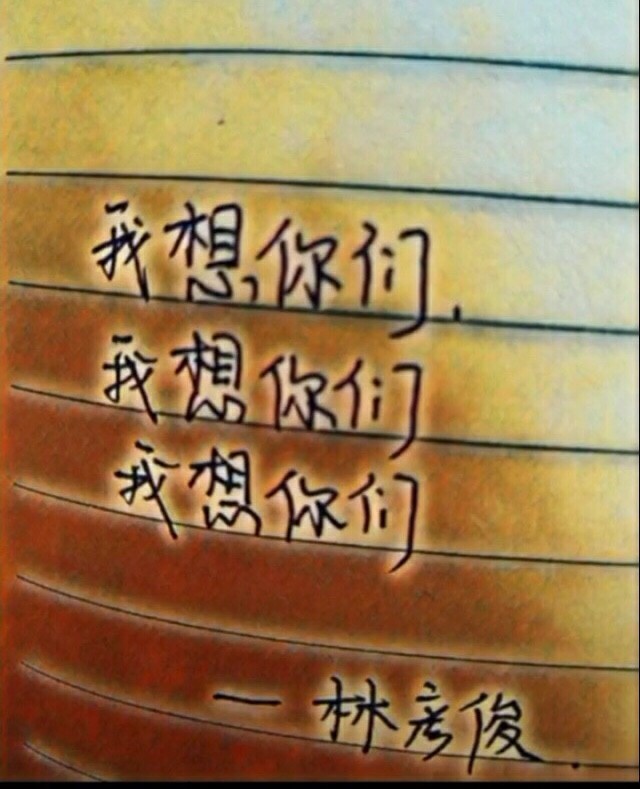 我想你们.
我想你们
我想你们
一林彦俊.